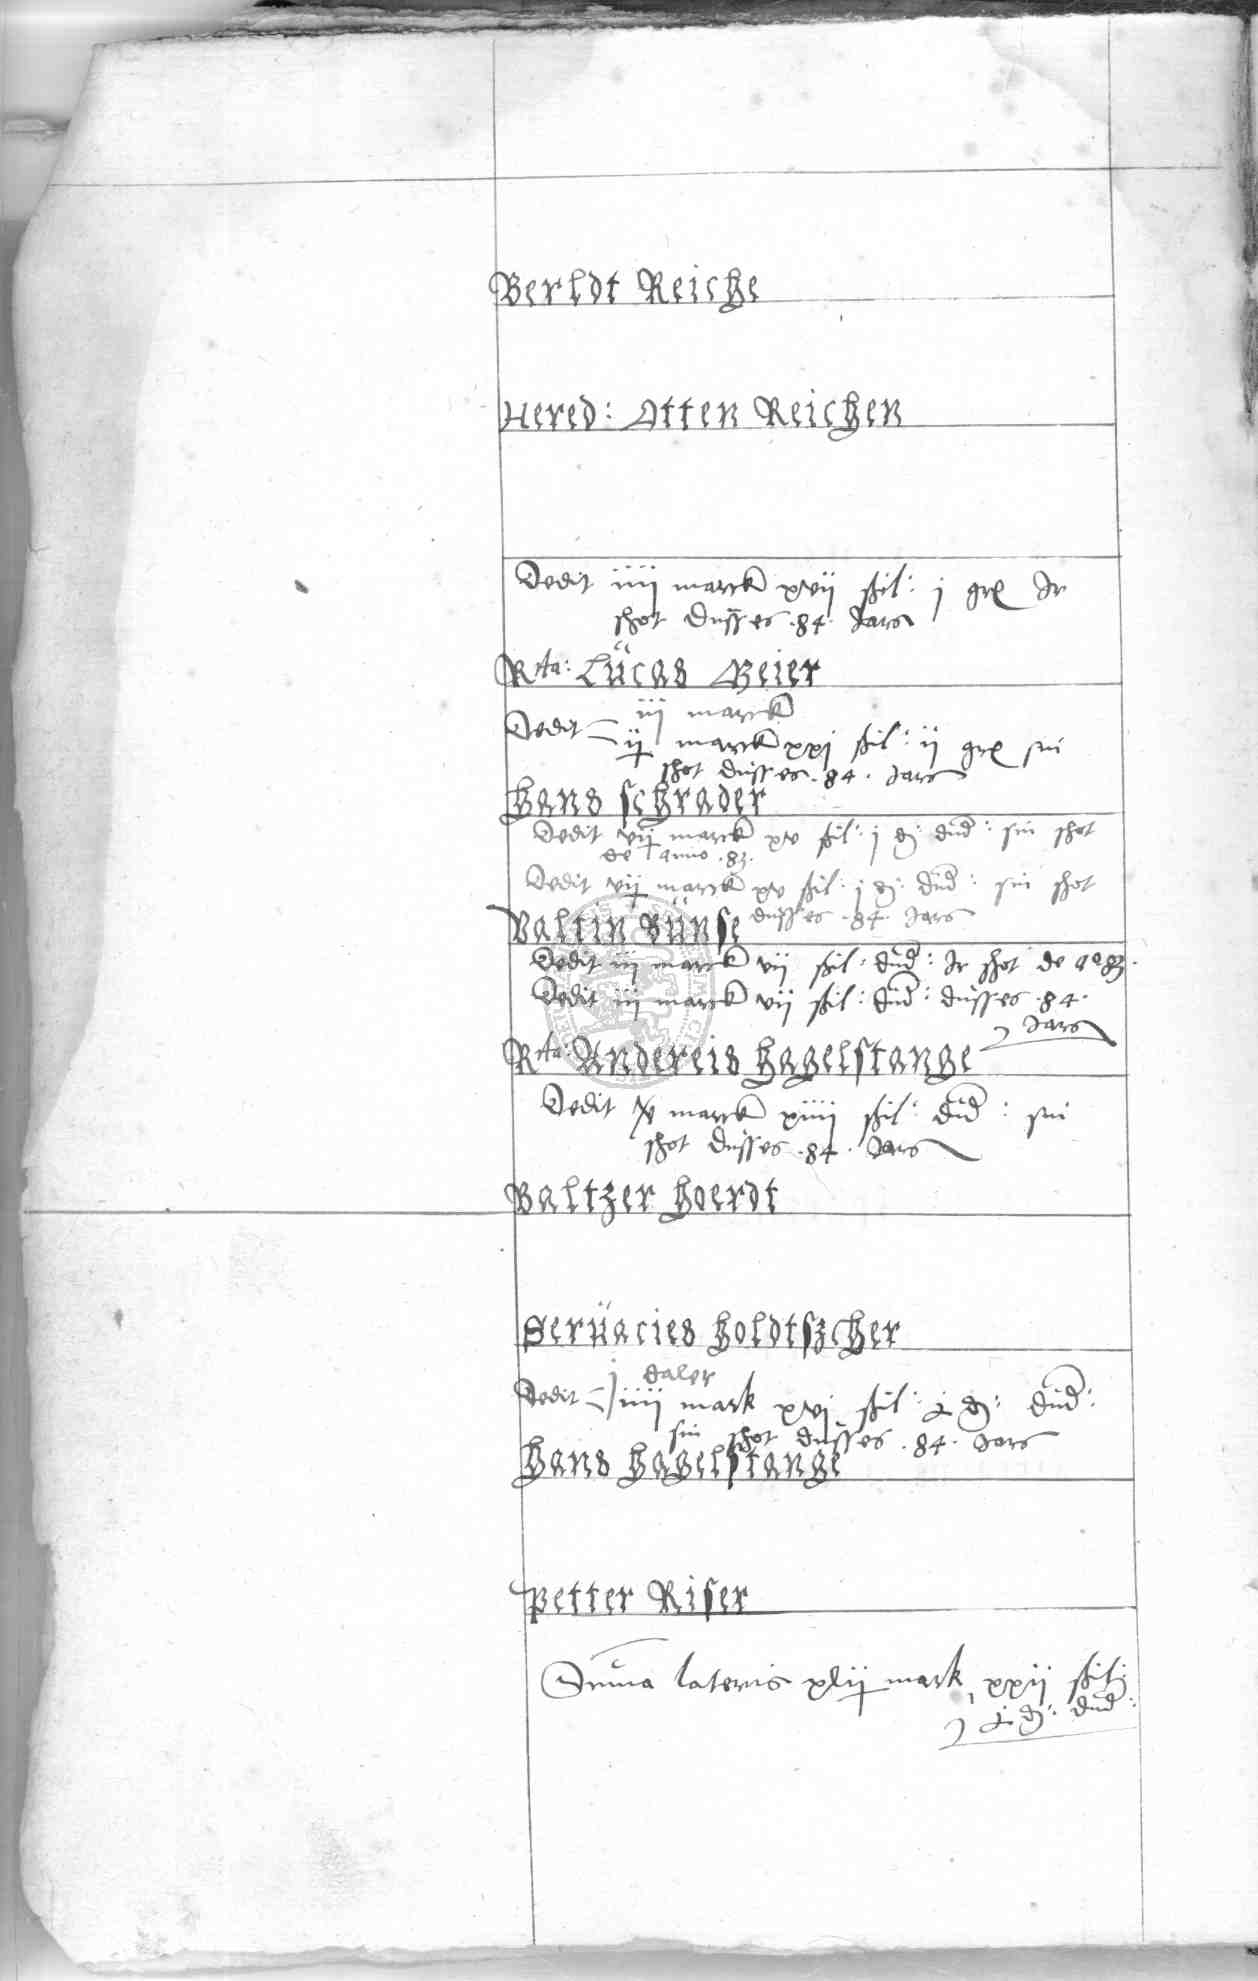 Berldt Reiche
Hered: Otten Reichen
Dedit iiij marck xvij ßil: j gr Ir
shot dusses .84. Jars
Rta: Lücas Beier
iij marck
Dedit ij marck xxj ßil: ij gr sin
shot dusses .84. Jars
Hans schrader
Dedit vij marck xv ßil: j d: dud: sin shot
de anno .83.
Dedit vij marck xv ßil: j d: dud: sin shot
dusses .84. Jars
Valtin Bünse
Dedit iij marck vij ßil: dud: Ir shot de ao 83.
Dedit iij marck vij ßil: dud: dusses .84.
Jars
Rta: Andereis Hagelstange
Dedit marck xiiij ßil: dud: sin
shot dusses .84. Jars
Baltzer Hoerdt
Serüacies Holdtszcher
j daler
Dedit iiij mark xvj ßil: d: dud:
sin shot dusses .84. Jars
Hans Hagelstange
Petter Riser
Suma lateris xlij mark, xxij ßil:
d: dud: